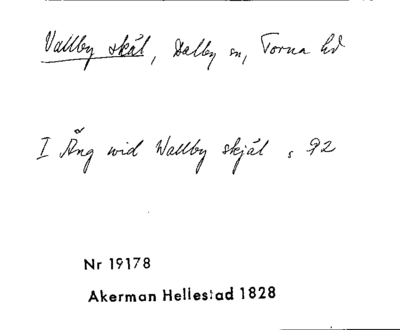 Vallby skäl, Dalby sn, Torna hd
I Äng wid Wallby skjäl , 92
Nr 19178
Akerman Hellestad 1828